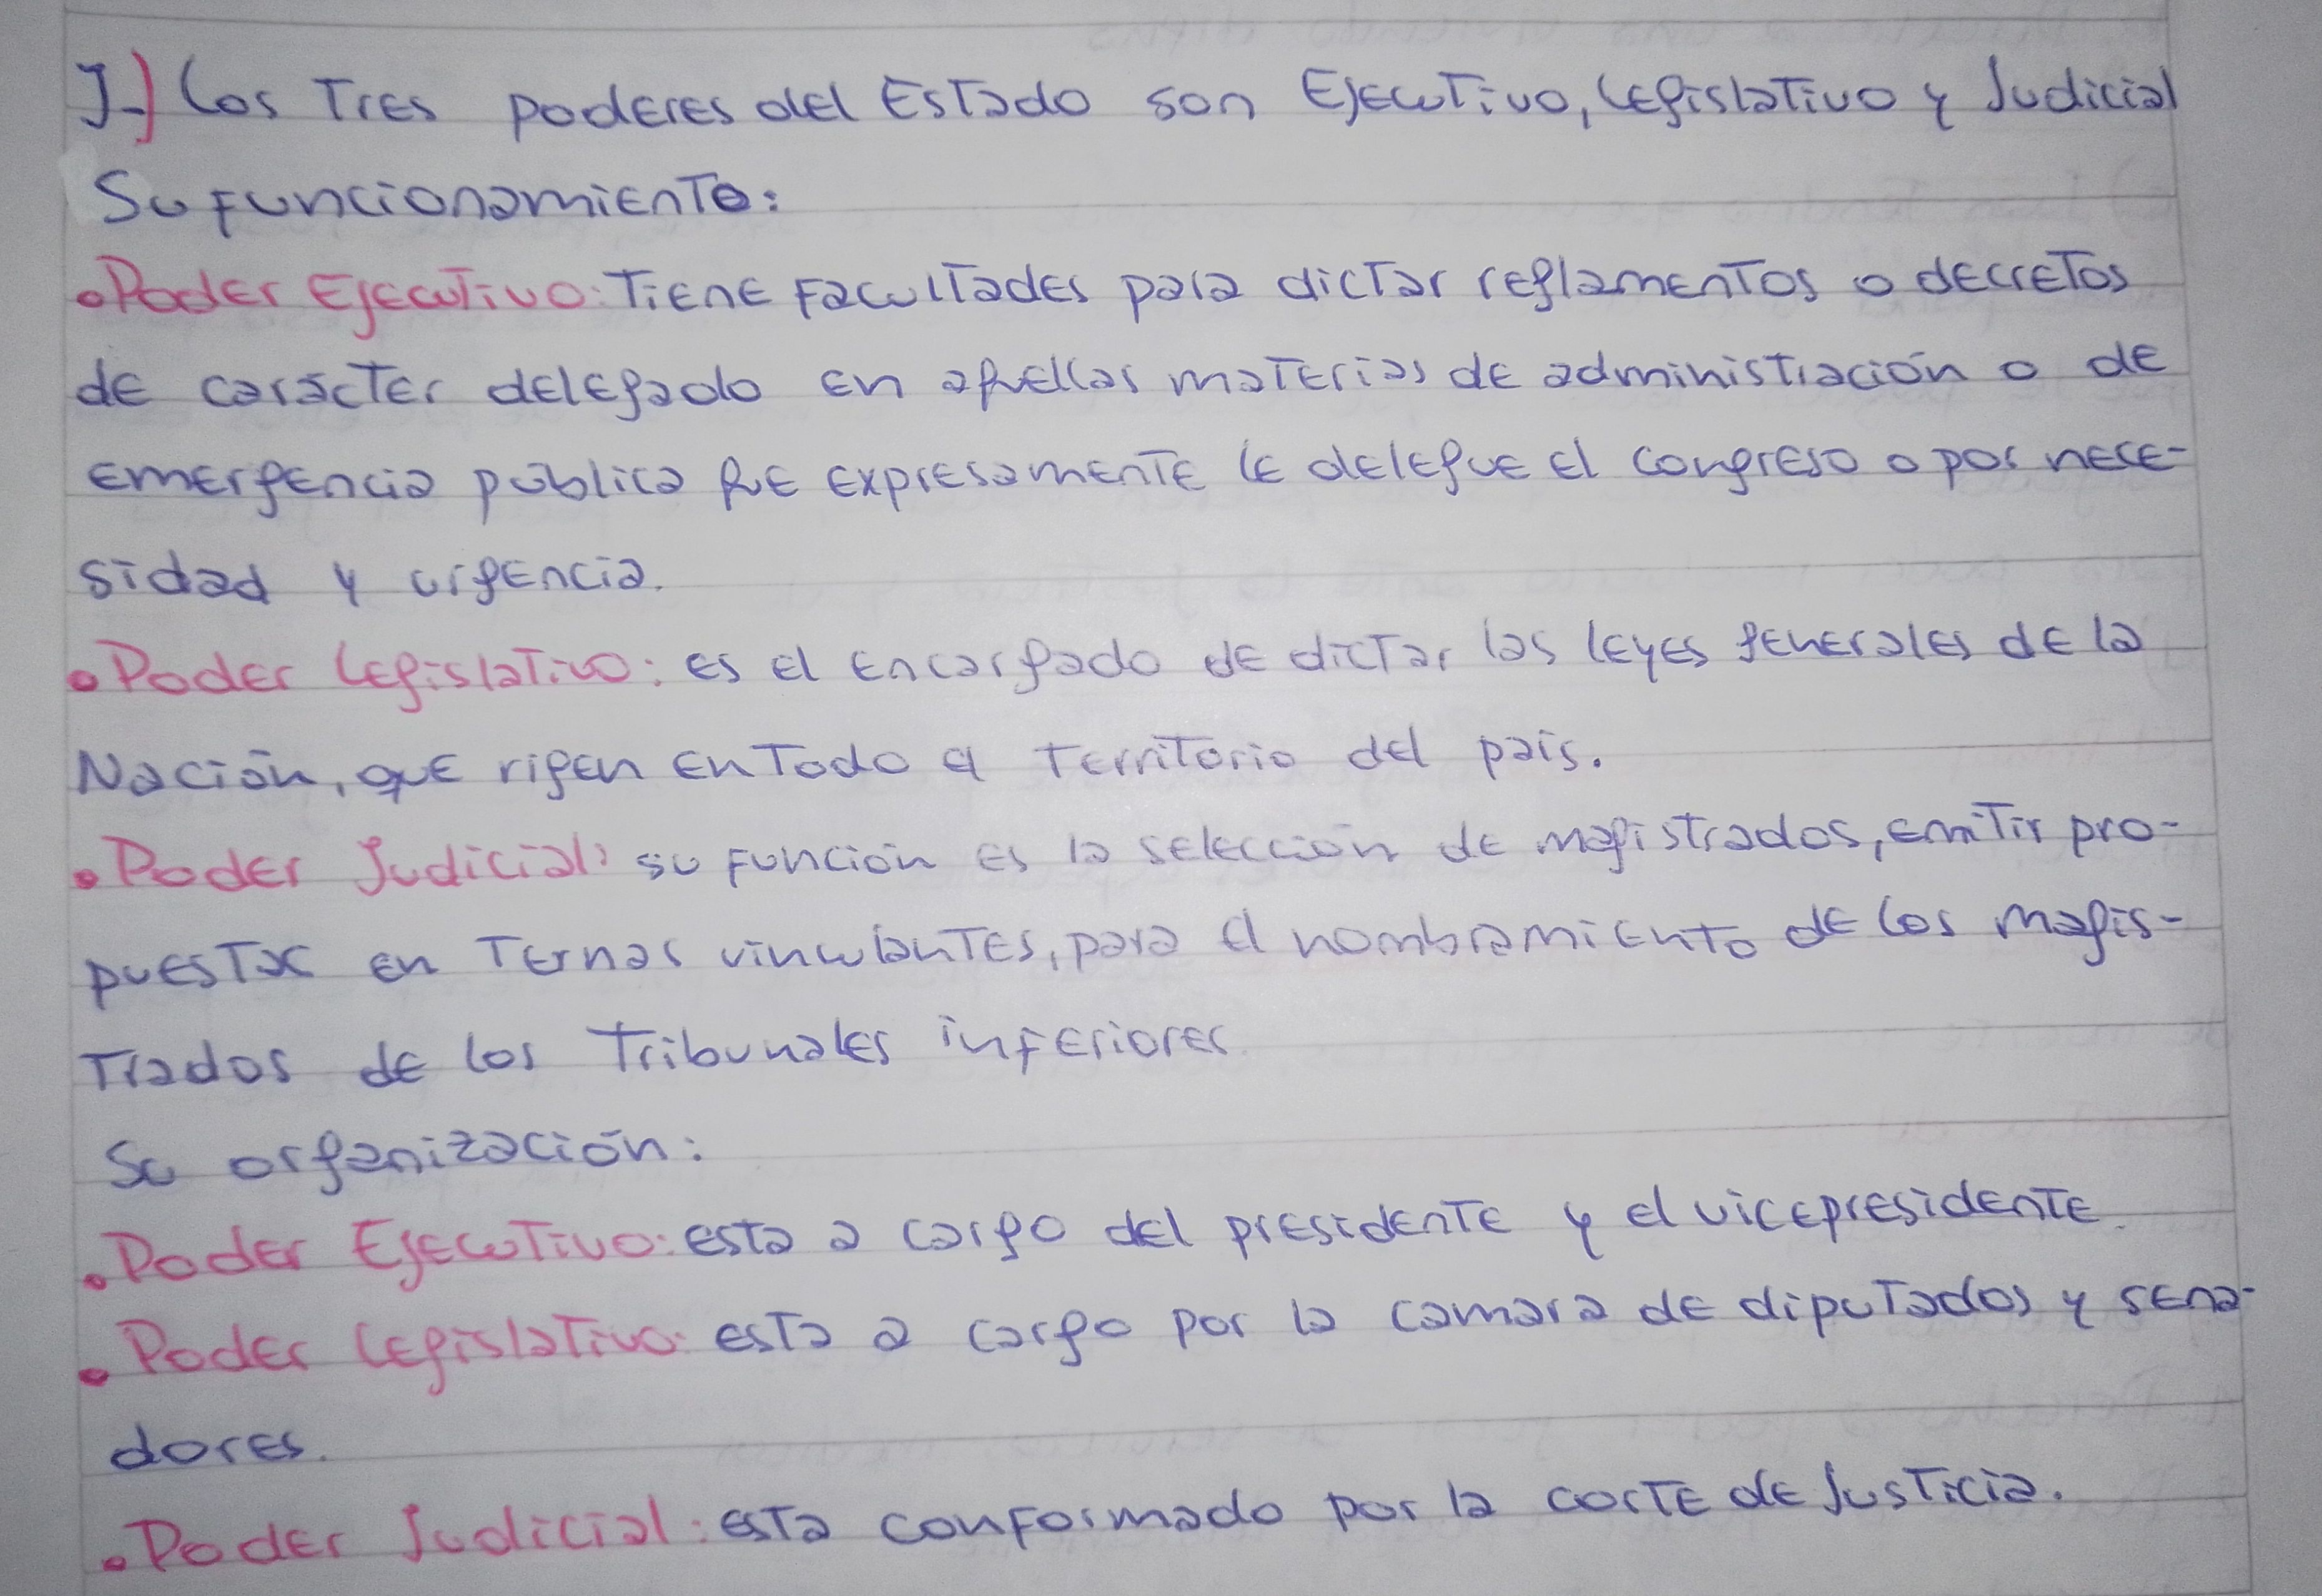 J-) Los Tres poderes del Estado son Ejecutivo, Legislativo y Judicial
Su funcionamiento:
• Poder Ejecutivo: Tiene facultades para dictar reglamentos o decretos
de carácter delegado en aquellas materias de administración o de
emergencia pública que expresamente le delegue el congreso o por nece-
sidad y urgencia.
• Poder Legislativo: es el encargado de dictar las leyes generales de la
Nación, que rigen en Todo el Territorio del país.
• Poder Judicial: su función es la selección de magistrados, emitir pro-
puestas en Ternas vinculantes, para el nombramiento de los magis-
Trados de los Tribunales inferiores
Su organización:
• Poder Ejecutivo: esta a cargo del presidente y el vicepresidente.
• Poder Legislativo: esta a cargo por la camara de diputados y sena-
dores.
• Poder Judicial: esta conformado por la corte de Justicia.